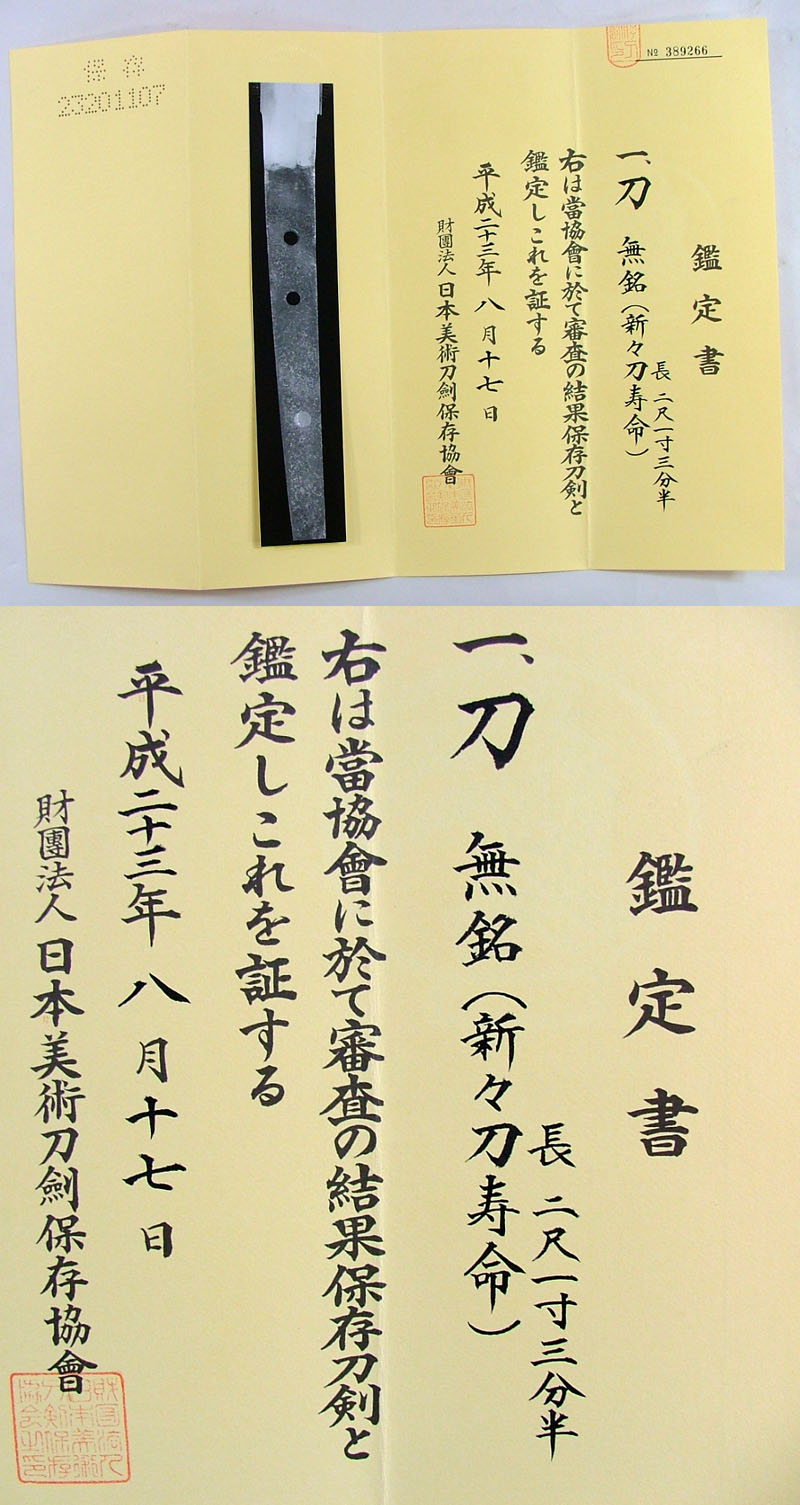 保存
23201107
№ 389266
鑑定書
一、刀 無銘（新々刀寿命）
長 二尺一寸三分半
右は當協會に於て審査の結果保存刀剣と
鑑定しこれを証する
平成二十三年 八月十七日
財團法人 日本美術刀劍保存協會
鑑定書
一、刀 無銘（新々刀寿命）
長 二尺一寸三分半
右は當協會に於て審査の結果保存刀剣と
鑑定しこれを証する
平成二十三年 八月十七日
財團法人 日本美術刀劍保存協會